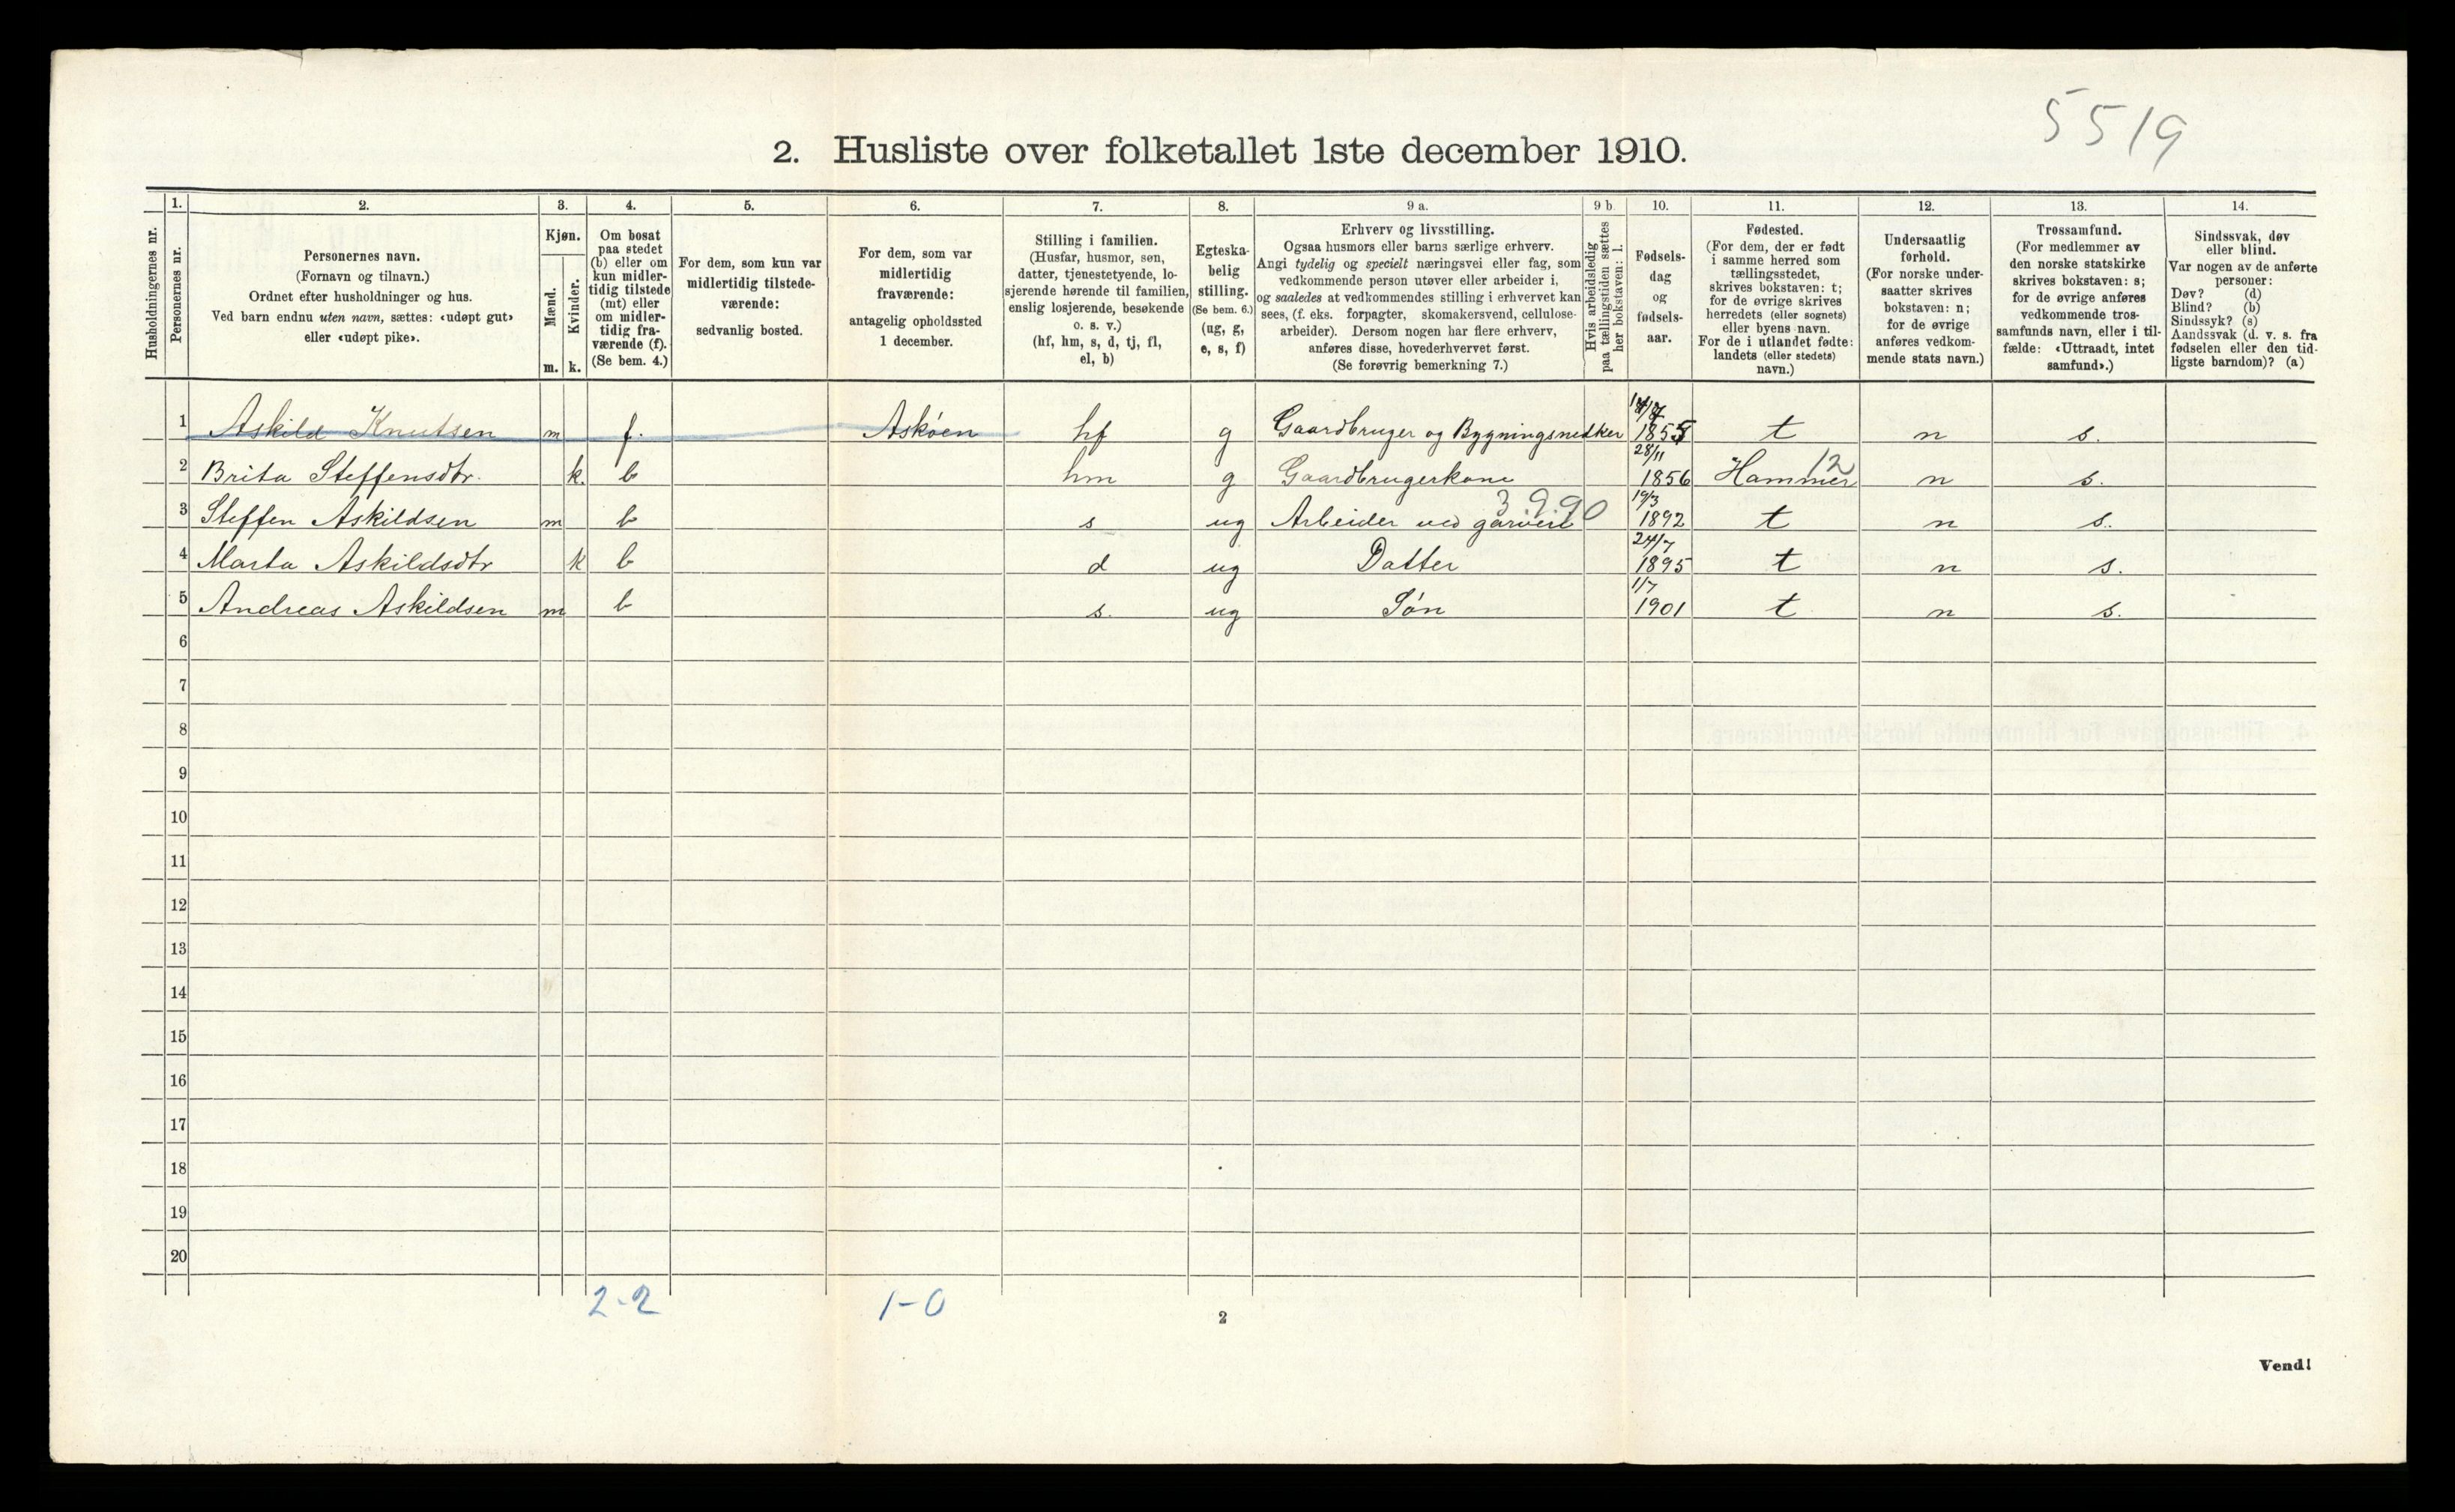 5519
2. Husliste over folketallet 1ste december 1910.
Husholdningernes nr.
1.
Personernes nr.
2.
Personernes navn.
(Fornavn og tilnavn.)
Ordnet efter husholdninger og hus.
Ved barn endnu uten navn, sættes: «udøpt gut»
eller «udøpt pike».
3.
Kjøn.
Mænd.
m.
Kvinder.
k.
4.
Om bosat
paa stedet
(b) eller om
kun midler-
tidig tilstede
(mt) eller
om midler-
tidig fra-
værende (f).
(Se bem. 4.)
5.
For dem, som kun var
midlertidig tilstede-
værende:
sedvanlig bosted.
6.
For dem, som var
midlertidig
fraværende:
antagelig opholdssted
1 december.
7.
Stilling i familien.
(Husfar, husmor, søn,
datter, tjenestetyende, lo-
sjerende hørende til familien,
enslig losjerende, besøkende
o. s. v.)
(hf, hm, s, d, tj, fl,
el, b)
8.
Egteska-
belig
stilling.
(Se bem. 6.)
(ug, g,
e, s, f)
9 a.
Erhverv og livsstilling.
Ogsaa husmors eller barns særlige erhverv.
Angi tydelig og specielt næringsvei eller fag, som
vedkommende person utøver eller arbeider i,
og saaledes at vedkommendes stilling i erhvervet kan
sees, (f. eks. forpagter, skomakersvend, cellulose-
arbeider). Dersom nogen har flere erhverv,
anføres disse, hovederhvervet først.
(Se forøvrig bemerkning 7.)
9 b.
Hvis arbeidsledig
paa tællingstiden sættes
her bokstaven: l.
10.
Fødsels-
dag
og
fødsels-
aar.
11.
Fødested.
(For dem, der er født
i samme herred som
tællingsstedet,
skrives bokstaven: t;
for de øvrige skrives
herredets (eller sognets)
eller byens navn.
For de i utlandet fødte:
landets (eller stedets)
navn.)
12.
Undersaatlig
forhold.
(For norske under-
saatter skrives
bokstaven: n;
for de øvrige
anføres vedkom-
mende stats navn.)
13.
Trossamfund.
(For medlemmer av
den norske statskirke
skrives bokstaven: s;
for de øvrige anføres
vedkommende tros-
samfunds navn, eller i til-
fælde: «Uttraadt, intet
samfund».)
14.
Sindssvak, døv
eller blind.
Var nogen av de anførte
personer:
Døv? (d)
Blind? (b)
Sindssyk? (s)
Aandssvak (d. v. s. fra
fødselen eller den tid-
ligste barndom)? (a)
1 Askild Knutsen m f. Askøen hf g Gaardbruger og Bygningsnedker 1855 t n s.
28/11
2 Brita Steffensdtr. k. b hm g Gaardbrugerkone 1856 Hammer 12 n s.
3990 19/3
3 Steffen Askildsen m b s ug Arbeider ved garveri 1892 t n s.
24/7
4 Marta Askildsdtr k b d ug Datter 1895 t n s.
1/7
5 Andreas Askildsen m b s. ug Søn 1901 t n s.
6
7
8
9
10
11
12
13
14
15
16
17
18
19
20
2-2 1-0
2
Vend!